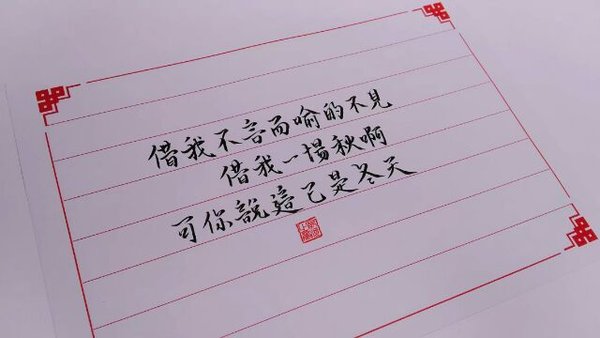 借我不言而喻的不見
借我一場秋啊
可你說這已是冬天